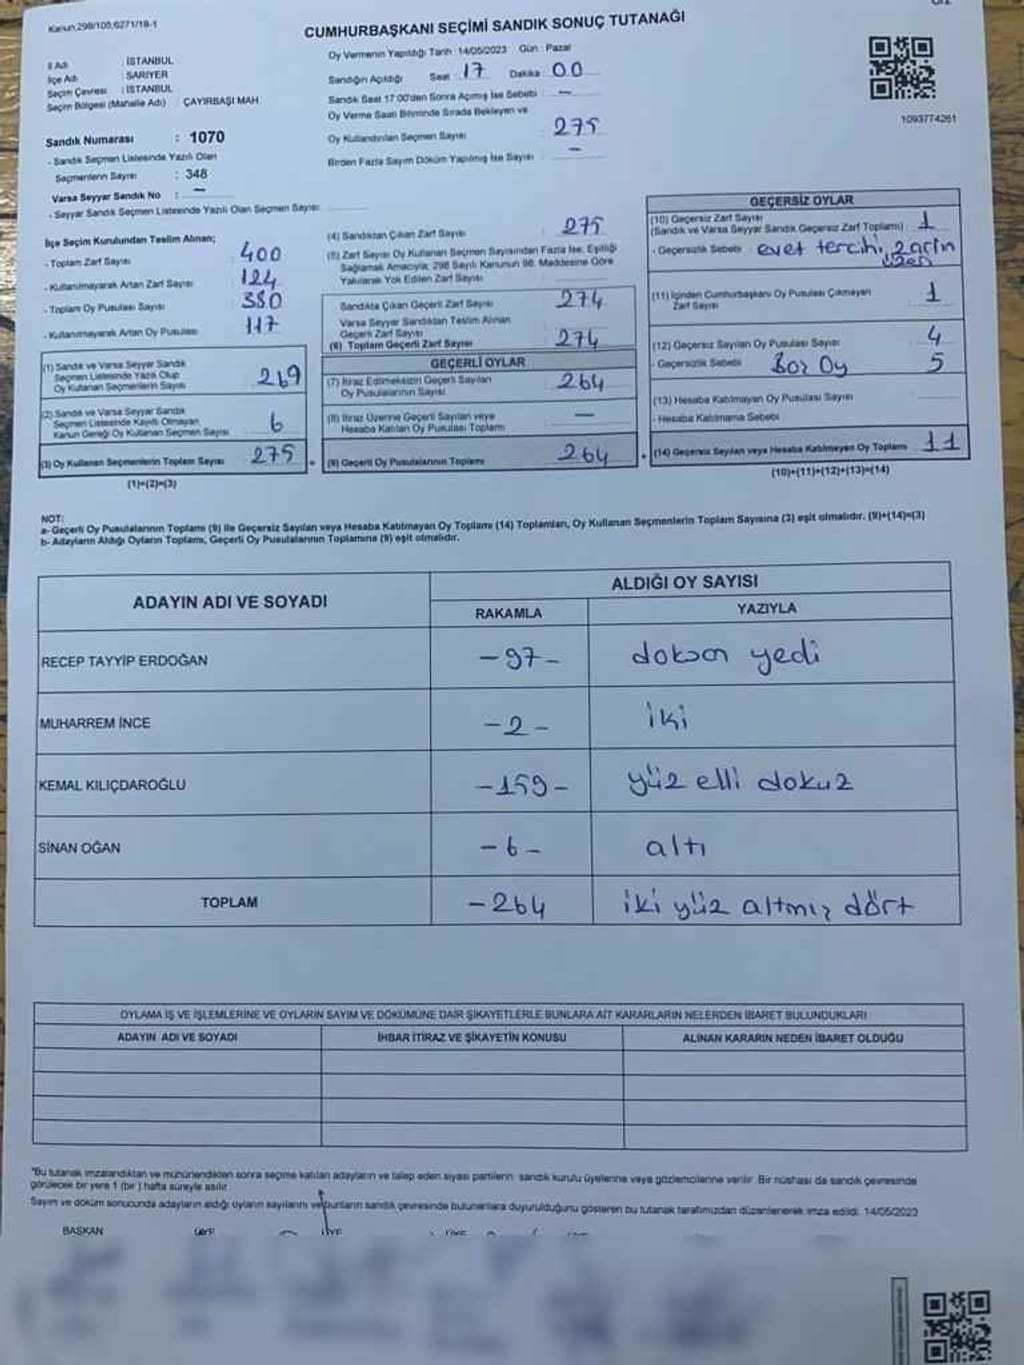 Kanun 298/105;6271/19-1
CUMHURBAŞKANI SEÇİMİ SANDIK SONUÇ TUTANAĞI
İl Adı : İSTANBUL
İlçe Adı : SARIYER
Seçim Çevresi : İSTANBUL
Seçim Bölgesi (Mahalle Adı) : ÇAYIRBAŞI MAH.
Sandık Numarası : 1070
- Sandık Seçmen Listesinde Yazılı Olan
Seçmenlerin Sayısı : 348
Varsa Seyyar Sandık No : —
- Seyyar Sandık Seçmen Listesinde Yazılı Olan Seçmen Sayısı:
Oy Vermenin Yapıldığı Tarih : 14/05/2023 Gün : Pazar
Sandığın Açıldığı Saat : 17 Dakika : 00
Sandık Saat 17:00'den Sonra Açılmış İse Sebebi : —
Oy Verme Saati Bitiminde Sırada Bekleyen ve
Oy Kullandırılan Seçmen Sayısı : 275
Birden Fazla Sayım Döküm Yapılmış İse Sayısı : —
1093774261
İlçe Seçim Kurulundan Teslim Alınan;
- Toplam Zarf Sayısı : 400
- Kullanılmayarak Artan Zarf Sayısı : 124
- Toplam Oy Pusulası Sayısı : 380
- Kullanılmayarak Artan Oy Pusulası : 117
(1) Sandık ve Varsa Seyyar Sandık
Seçmen Listesinde Yazılı Olup
Oy Kullanan Seçmenlerin Sayısı 269
(2) Sandık ve Varsa Seyyar Sandık
Seçmen Listesinde Kayıtlı Olmayan
Kanun Gereği Oy Kullanan Seçmen Sayısı 6
(3) Oy Kullanan Seçmenlerin Toplam Sayısı 275
(1)+(2)=(3)
(4) Sandıktan Çıkan Zarf Sayısı : 275
(5) Zarf Sayısı Oy Kullanan Seçmen Sayısından Fazla İse, Eşitliği
Sağlamak Amacıyla; 298 Sayılı Kanunun 98. Maddesine Göre
Yakılarak Yok Edilen Zarf Sayısı :
Sandıkta Çıkan Geçerli Zarf Sayısı : 274
Varsa Seyyar Sandıktan Teslim Alınan
Geçerli Zarf Sayısı :
(6) Toplam Geçerli Zarf Sayısı : 274
GEÇERLİ OYLAR
(7) İtiraz Edilmeksizin Geçerli Sayılan
Oy Pusulalarının Sayısı : 264
(8) İtiraz Üzerine Geçerli Sayılan veya
Hesaba Katılan Oy Pusulası Toplamı : —
(9) Geçerli Oy Pusulalarının Toplamı : 264
GEÇERSİZ OYLAR
(10) Geçersiz Zarf Sayısı
(Sandık ve Varsa Seyyar Sandık Geçersiz Zarf Toplamı) : 1
- Geçersizlik Sebebi : evet tercihi, zarfın
üzeri
(11) İçinden Cumhurbaşkanı Oy Pusulası Çıkmayan
Zarf Sayısı : 1
(12) Geçersiz Sayılan Oy Pusulası Sayısı : 4
- Geçersizlik Sebebi : Boş Oy 5
(13) Hesaba Katılmayan Oy Pusulası Sayısı :
- Hesaba Katılmama Sebebi :
(14) Geçersiz Sayılan veya Hesaba Katılmayan Oy Toplamı : 11
(10)+(11)+(12)+(13)=(14)
NOT:
a- Geçerli Oy Pusulalarının Toplamı (9) ile Geçersiz Sayılan veya Hesaba Katılmayan Oy Toplamı (14) Toplamları, Oy Kullanan Seçmenlerin Toplam Sayısına (3) eşit olmalıdır. (9)+(14)=(3)
b- Adayların Aldığı Oyların Toplamı, Geçerli Oy Pusulalarının Toplamına (9) eşit olmalıdır.
ADAYIN ADI VE SOYADI ALDIĞI OY SAYISI
RAKAMLA YAZIYLA
RECEP TAYYİP ERDOĞAN -97- doksan yedi
MUHARREM İNCE -2- iki
KEMAL KILIÇDAROĞLU -159- yüz elli dokuz
SİNAN OĞAN -6- altı
TOPLAM -264 iki yüz altmış dört
OYLAMA İŞ VE İŞLEMLERİNE VE OYLARIN SAYIM VE DÖKÜMÜNE DAİR ŞİKAYETLERLE BUNLARA AİT KARARLARIN NELERDEN İBARET BULUNDUKLARI
ADAYIN ADI VE SOYADI İHBAR İTİRAZ VE ŞİKAYETİN KONUSU ALINAN KARARIN NEDEN İBARET OLDUĞU
*Bu tutanak imzalandıktan ve mühürlendikten sonra seçime katılan adayların ve talep eden siyasi partilerin sandık kurulu üyelerine veya gözlemcilerine verilir. Bir nüshası da sandık çevresinde
görülecek bir yere 1 (bir) hafta süreyle asılır.
Sayım ve döküm sonucunda adayların aldığı oyların sayılarını ve bunların sandık çevresinde bulunanlara duyurulduğunu gösteren bu tutanak tarafımızdan düzenlenerek imza edildi. 14/05/2023
BAŞKAN ÜYE ÜYE ÜYE